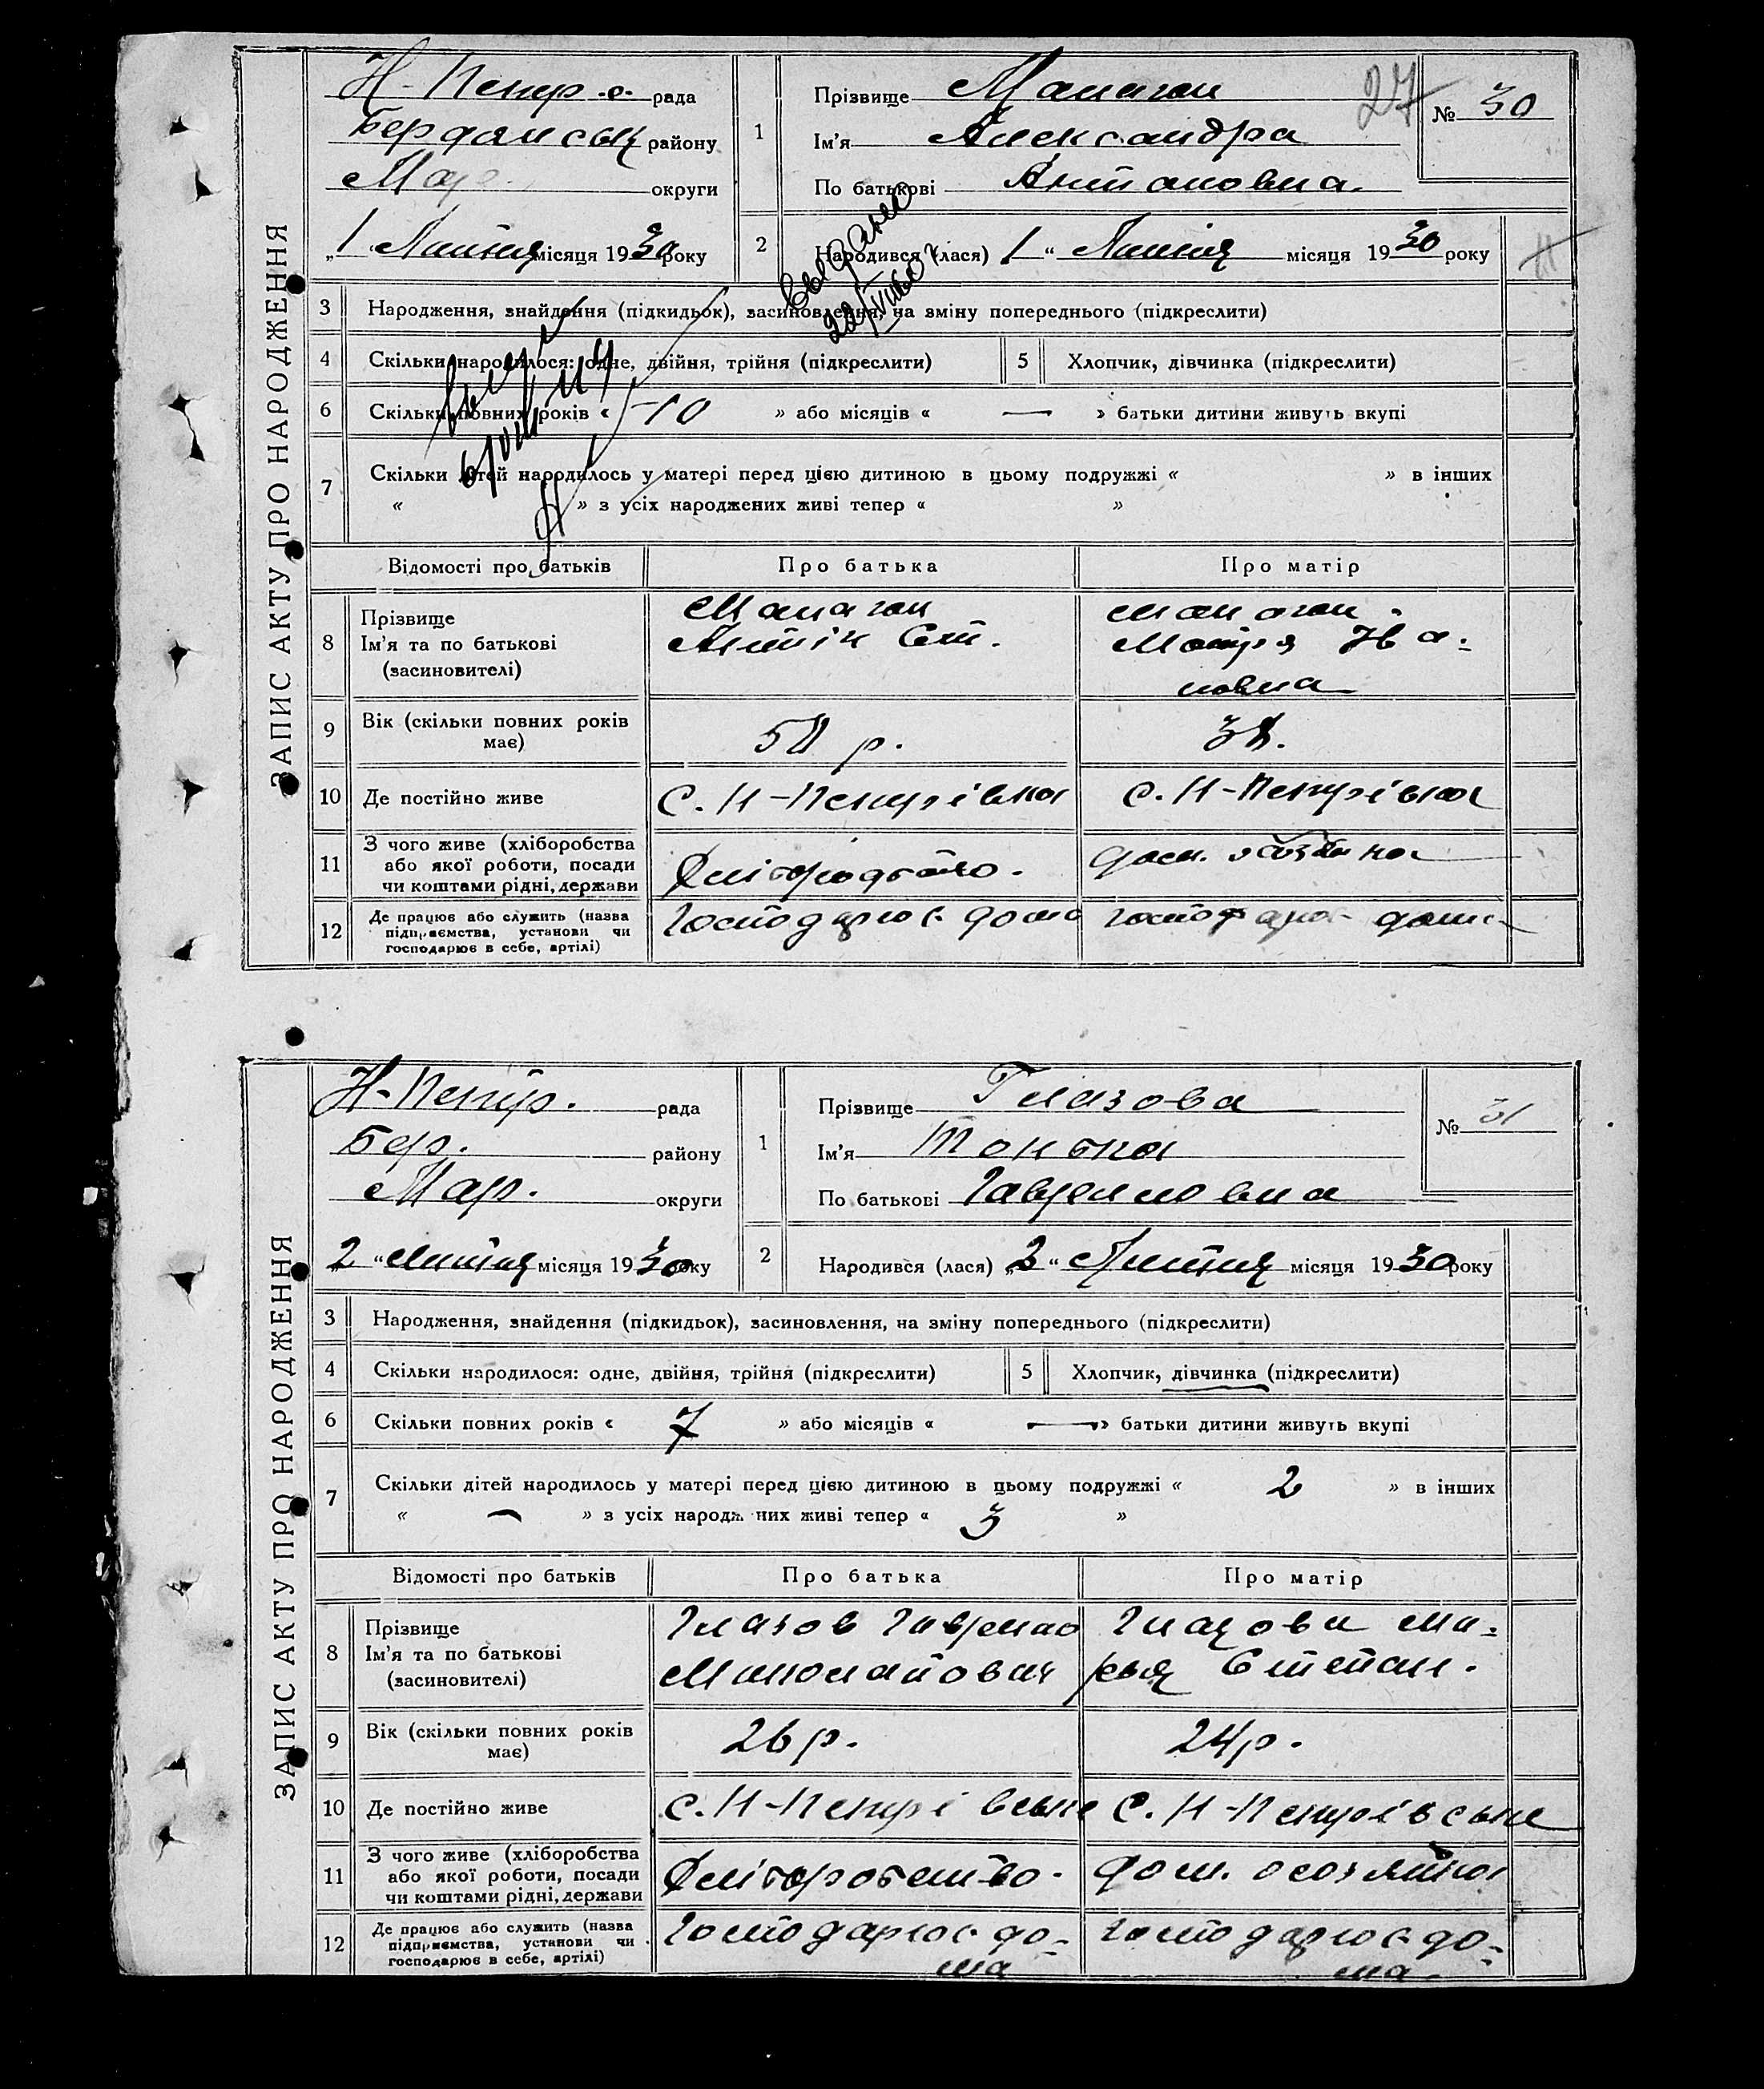 ЗАПИС АКТУ ПРО НАРОДЖЕННЯ
27
Н-Петр. рада
Бердянськ району
Мар. округи
„1 Лютня місяця 1930 року
1 Прізвище Манаган № 30
Ім'я Александра
По батькові Антановна.
2 Народився (лася) „1 “ Лютня місяця 1930 року
выдано
3 Народження, знайдення (підкидьок), засиновлення, на зміну попереднього (підкреслити)
4 Скільки народилося: одне, двійня, трійня (підкреслити) 5 Хлопчик, дівчинка (підкреслити)
6 Скільки повних років « 10 » або місяців « — » батьки дитини живуть вкупі
7 Скільки дітей народилось у матері перед цією дитиною в цьому подружжі « » в інших
« » з усіх народжених живі тепер « »
Відомості про батьків Про батька Про матір
8 Прізвище Манаган Манаган
Ім'я та по батькові Антін Ст. Мотря Ива-
(засиновителі) новна
9 Вік (скільки повних років р.
має)
10 Де постійно живе с. Н-Петрівка с. Н-Петрівка
11 З чого живе (хліборобства
або якої роботи, посади Хліборобство.
чи коштами рідні, держави
12 Де працює або служить (назва Господарює дома господарює дома
підприємства, установи чи
господарює в себе, артілі)
ЗАПИС АКТУ ПРО НАРОДЖЕННЯ
Н-Петр. рада
Бер. району
Мар. округи
„2 “ Лютня місяця 1930 року
1 Прізвище Глазова № 31
Ім'я Тонька
По батькові Гавриловна
2 Народився (лася) „2 “ Лютня місяця 1930 року
3 Народження, знайдення (підкидьок), засиновлення, на зміну попереднього (підкреслити)
4 Скільки народилося: одне, двійня, трійня (підкреслити) 5 Хлопчик, дівчинка (підкреслити)
6 Скільки повних років « 7 » або місяців « — » батьки дитини живуть вкупі
7 Скільки дітей народилось у матері перед цією дитиною в цьому подружжі « 2 » в інших
« — » з усіх народжених живі тепер « 3 »
Відомості про батьків Про батька Про матір
8 Прізвище Глазов Гаврило Глазова Ма-
Ім'я та по батькові рья Степан.
(засиновителі)
9 Вік (скільки повних років 26 р. 24 р.
має)
10 Де постійно живе с. Н-Петрівське с. Н-Петрівське
11 З чого живе (хліборобства
або якої роботи, посади Хліборобство. дом. хозяйка
чи коштами рідні, держави
12 Де працює або служить (назва Господарює до- господарює до-
підприємства, установи чи ма ма
господарює в себе, артілі)